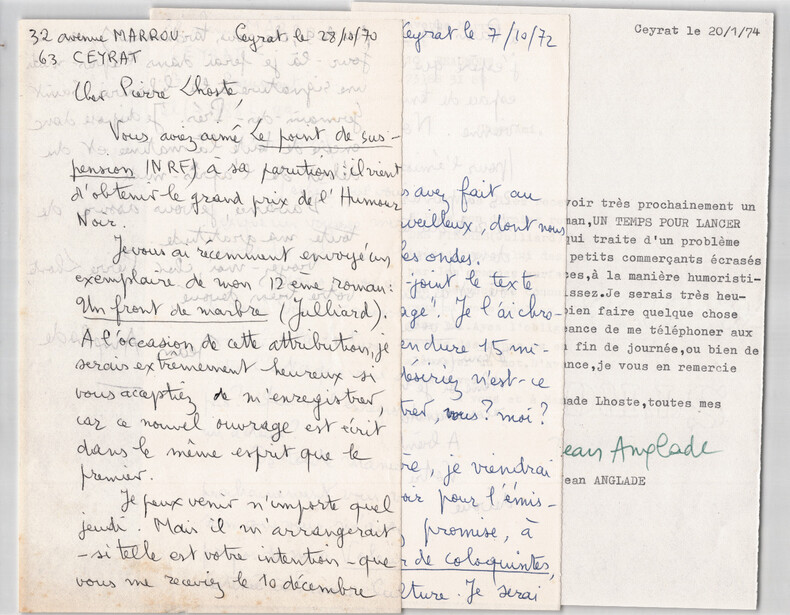 32 avenue MARROU Ceyrat le 28/10/70
63 CEYRAT
Cher Pierre Lhoste,
Vous aviez aimé Le point de sus-
pension (NRF) à sa parution : il vient
d'obtenir le grand prix de l'Humour
Noir.
Je vous ai récemment envoyé un
exemplaire de mon 12eme roman :
Un front de marbre (Julliard).
A l'occasion de cette attribution, je
serais extrêmement heureux si
vous acceptiez de m'enregistrer,
car ce nouvel ouvrage est écrit
dans le même esprit que le
premier.
Je peux venir n'importe quel
jeudi. Mais il m'arrangerait,
- si telle est votre intention - que
vous me receviez le 10 décembre
Ceyrat le 7/10/72
s avez fait au
veilleux, dont nous
les ondes.
-joint le texte
age". Je l'ai chro-
en dure 15 mi-
désiriez n'est-ce
trer, vous ? moi ?
re, je viendrai
oir pour l'émis-
promise, à
r de coloquintes,
ulture. Je serai
Ceyrat le 20/1/74
voir très prochainement un
man,UN TEMPS POUR LANCER
qui traite d'un problème
petits commerçants écrasés
ces,à la manière humoristi-
issez.Je serais très heu-
bien faire quelque chose
eance de me téléphoner aux
fin de journée,ou bien de
ance,je vous en remercie
made Lhoste,toutes mes
ean Anglade
ean ANGLADE